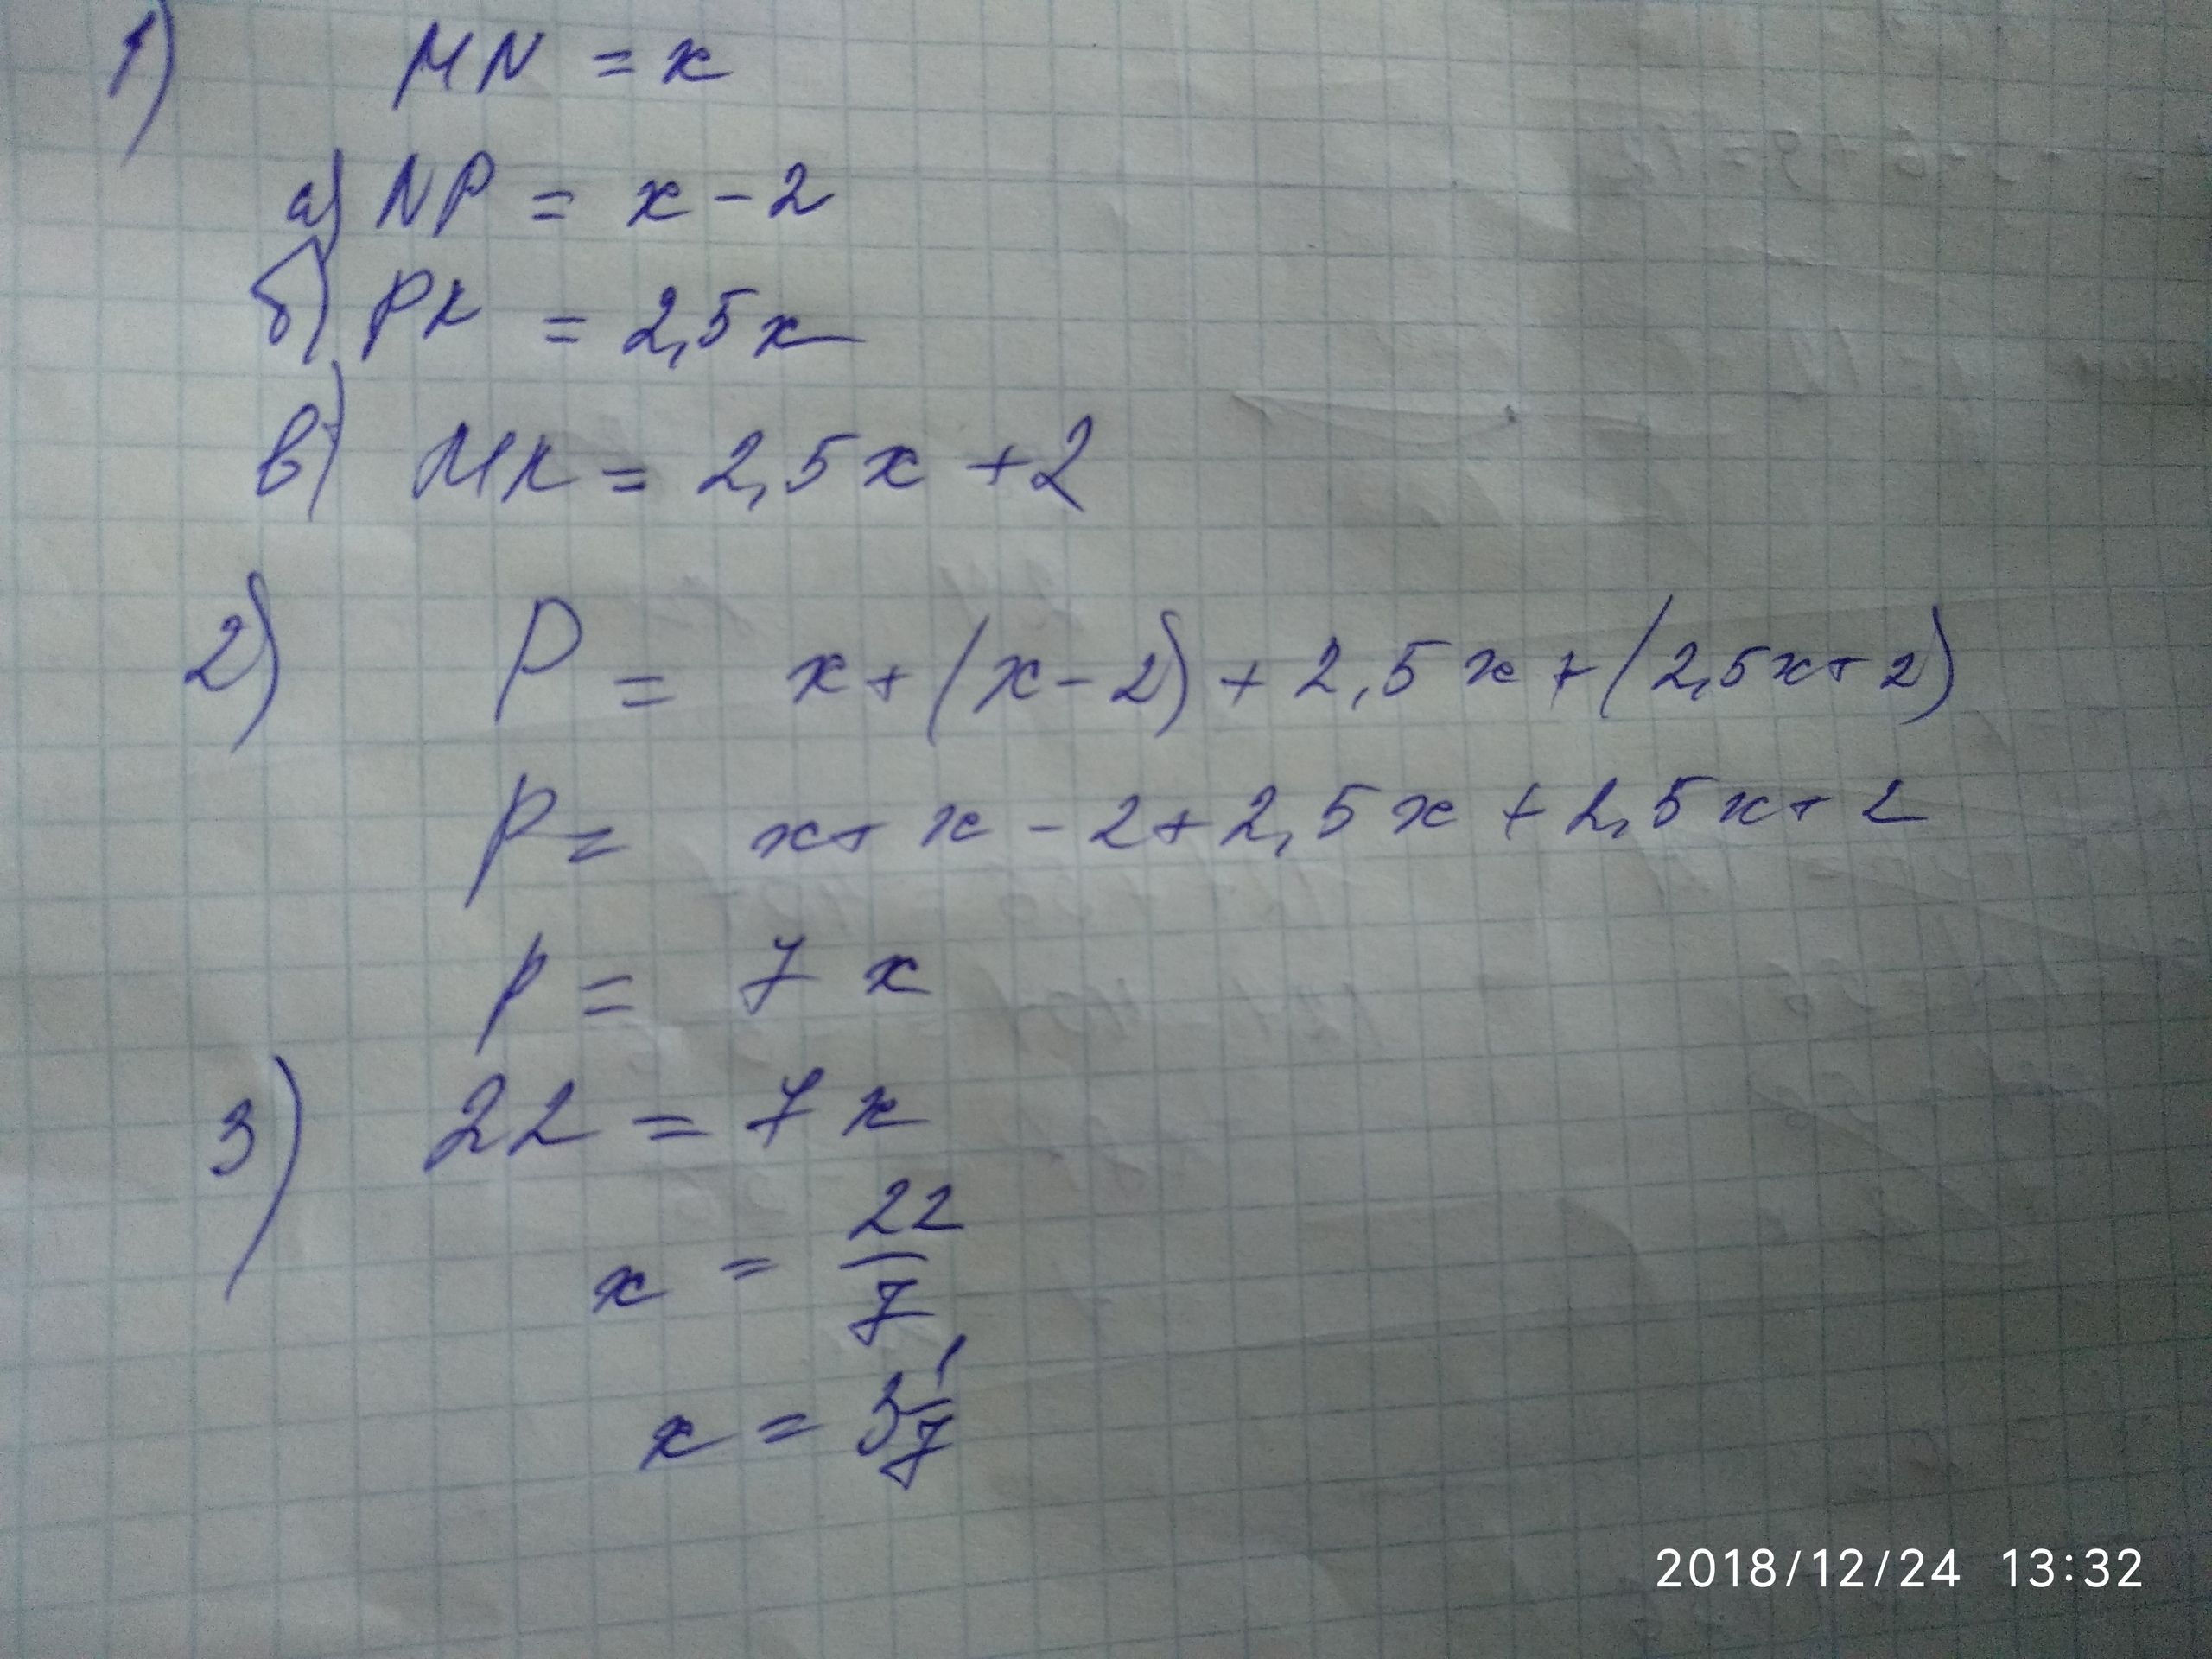 1) MN = x
а) NP = x - 2
б) PK = 2,5x
в) MK = 2,5x + 2
2) P = x + (x - 2) + 2,5x + (2,5x + 2)
P = x + x - 2 + 2,5x + 2,5x + 2
P = 7x
3) 22 = 7x
x = 22/7
x = 3 1/7
2018/12/24 13:32